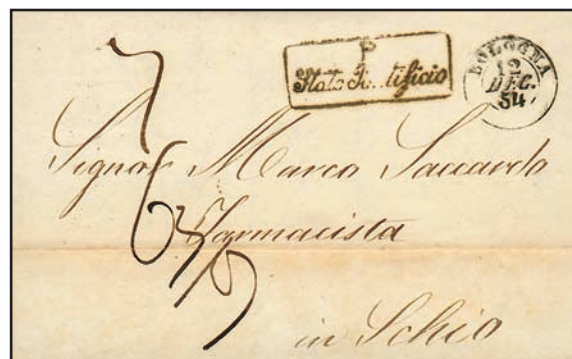 P
Stato Po..tificio
BOLOGNA
12
DEC.
54
7
Signor Marco Saccardo
6
Farmacista
in Schio